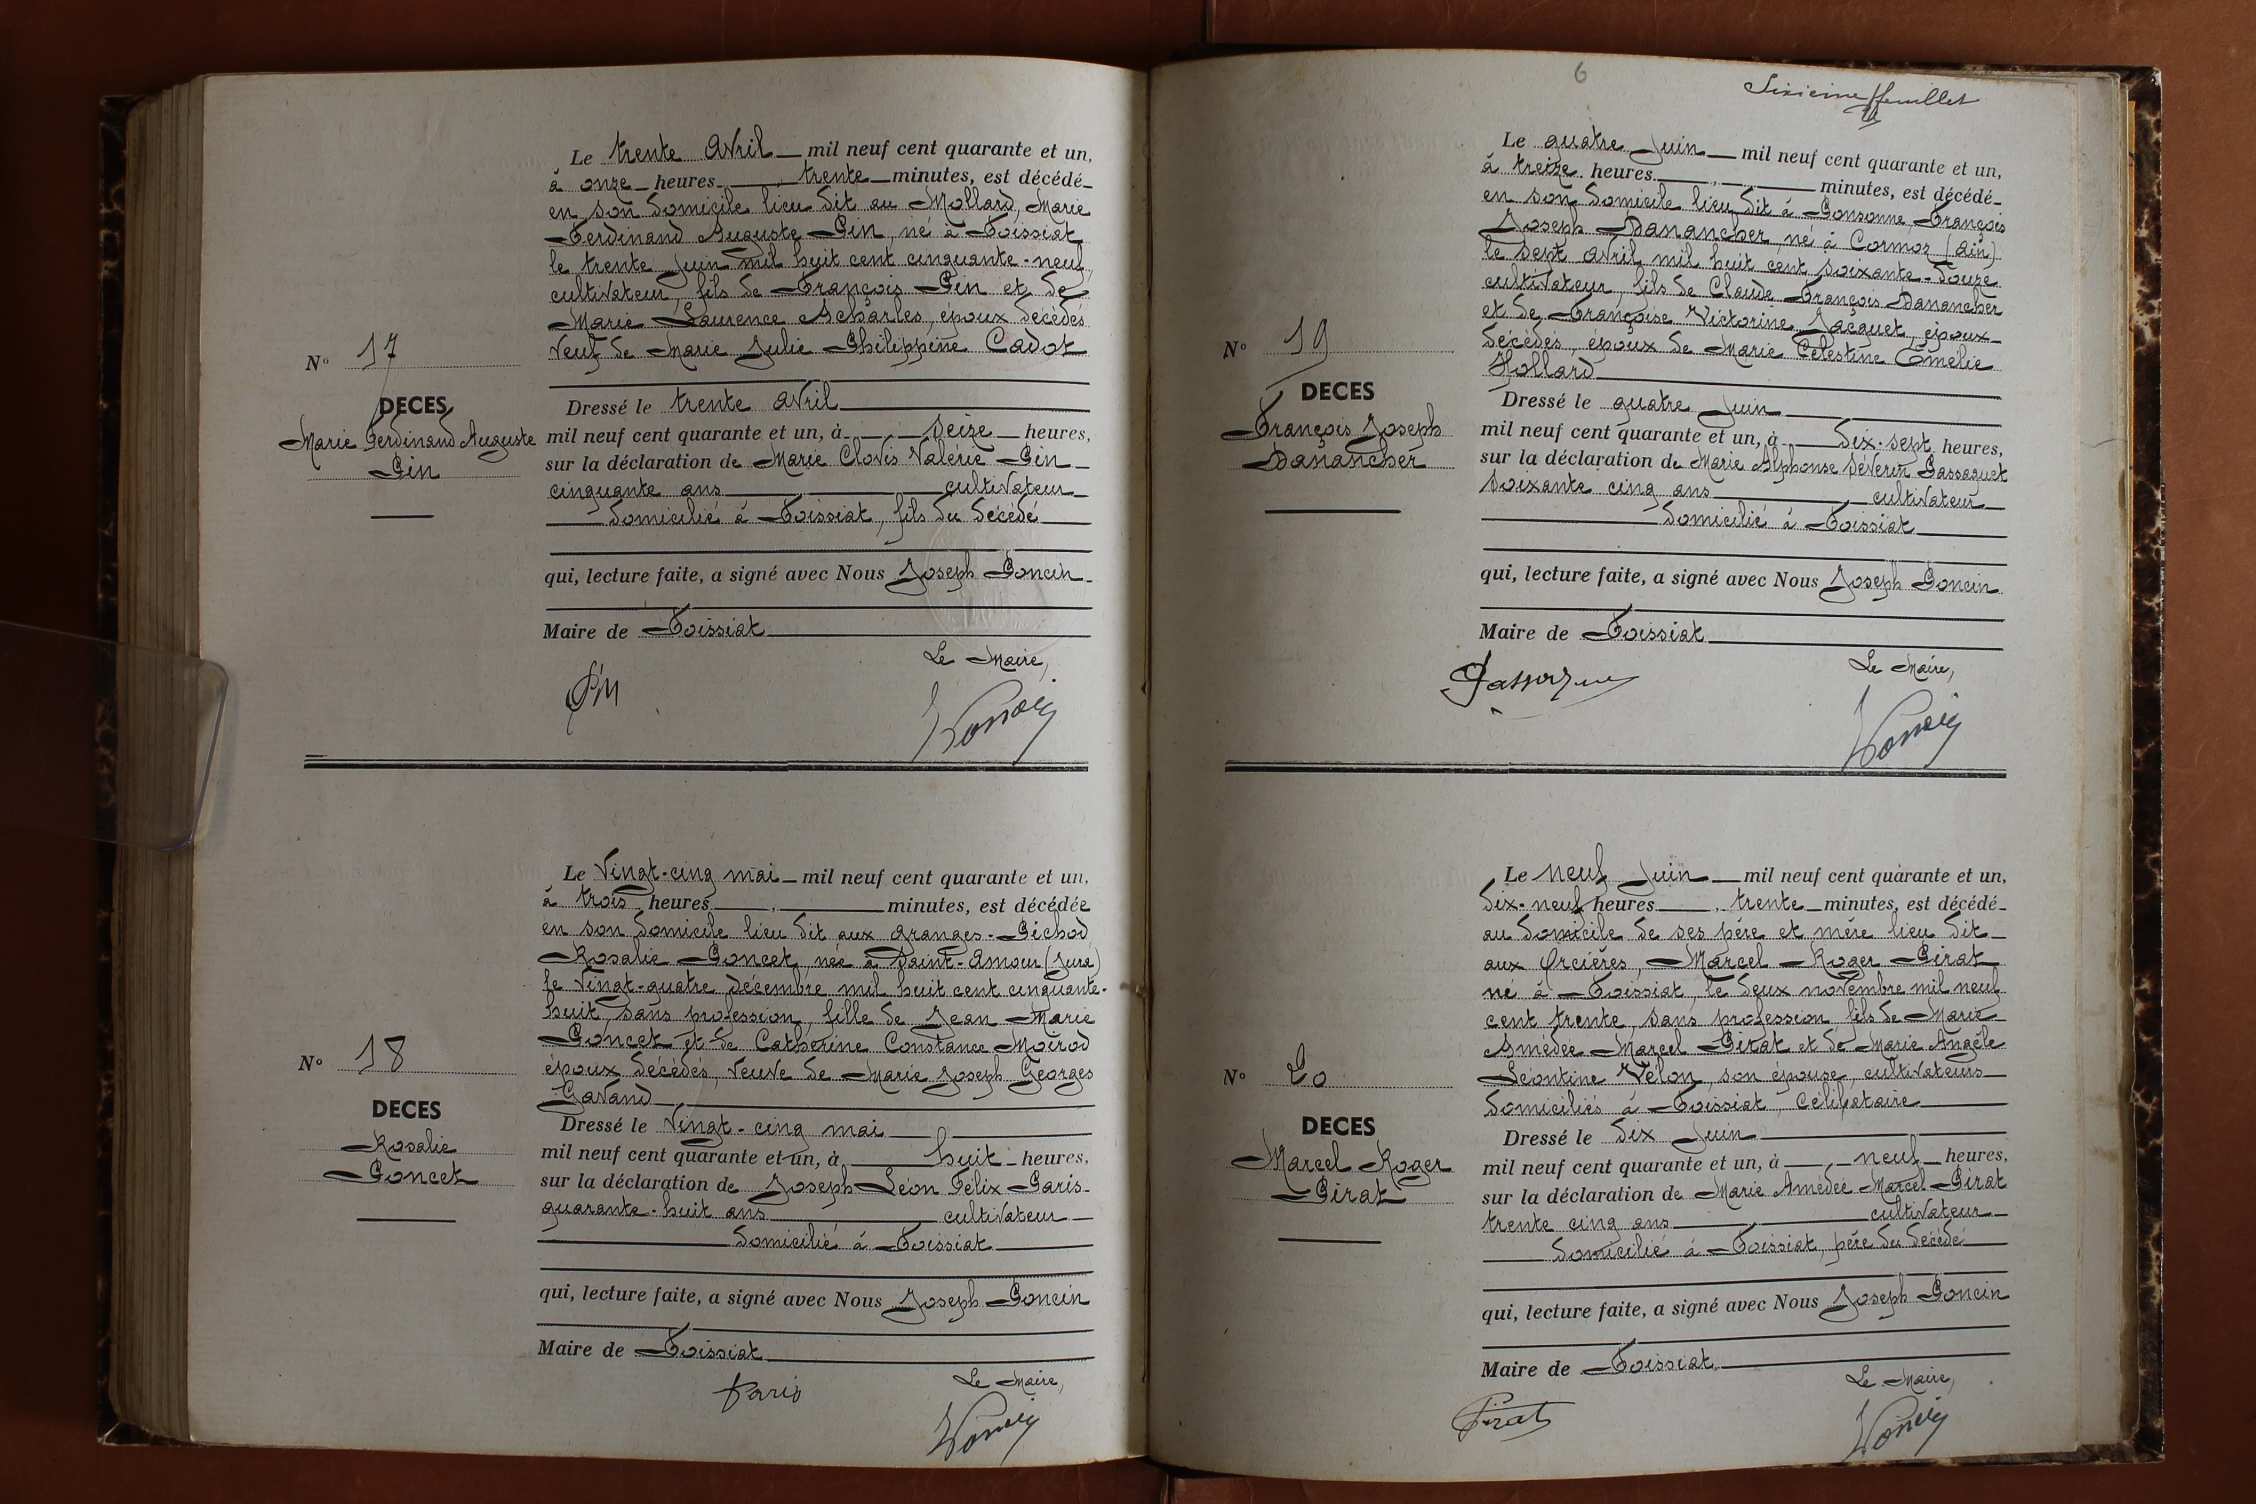 Le trente Avril mil neuf cent quarante et un,
à onze heures trente minutes, est décédé
en son domicile lieu dit au Mollard, Marie
Ferdinand Auguste Pin, né à Foissiat
le trente Juin mil huit cent cinquante-neuf,
cultivateur, fils de François Pin et de
Marie Laurence Acharles, époux décédés
Veuf de Marie Julie Philippine Cadot
N° 17
DECES
Marie Ferdinand Auguste
Pin
Dressé le trente Avril
mil neuf cent quarante et un, à seize heures,
sur la déclaration de Marie Clovis Valérie Pin
cinquante ans cultivateur
domicilié à Foissiat, fils du décédé
qui, lecture faite, a signé avec Nous Joseph Poncin
Maire de Foissiat
Le Maire,
Pin
Poncin
Le Vingt-cinq mai mil neuf cent quarante et un,
à trois heures minutes, est décédée
en son domicile lieu dit aux Granges-Pichod
Rosalie Poncet, née à Saint-Amour (Jura)
le Vingt-quatre décembre mil huit cent cinquante-
huit, sans profession, fille de Jean Marie
Poncet et de Catherine Constance Moirod
époux décédés, Veuve de Marie Joseph Georges
Gavand
N° 18
DECES
Rosalie
Poncet
Dressé le Vingt-cinq mai
mil neuf cent quarante et un, à huit heures,
sur la déclaration de Joseph Léon Félix Paris
quarante-huit ans cultivateur
domicilié à Foissiat
qui, lecture faite, a signé avec Nous Joseph Poncin
Maire de Foissiat
Le Maire,
Paris
Poncin
6
Sixième feuillet
Le quatre Juin mil neuf cent quarante et un,
à treize heures minutes, est décédé
en son domicile lieu dit à Ponsonne, François
Joseph Danancher né à Cormoz (Ain)
le sept Avril mil huit cent soixante-douze
cultivateur, fils de Claude François Danancher
et de Françoise Victorine Jacquet, époux
décédés, époux de Marie Célestine Emélie
Hollard
N° 19
DECES
François Joseph
Danancher
Dressé le quatre Juin
mil neuf cent quarante et un, à dix-sept heures,
sur la déclaration de Marie Alphonse Séverin Passaquet
soixante cinq ans cultivateur
domicilié à Foissiat
qui, lecture faite, a signé avec Nous Joseph Poncin
Maire de Foissiat
Le Maire,
Poncin
Le neuf Juin mil neuf cent quarante et un,
dix-neuf heures trente minutes, est décédé
au domicile de ses père et mère lieu dit
aux Orcières, Marcel Roger Pirat
né à Foissiat, le deux novembre mil neuf
cent trente, sans profession, fils de Marie
Amédée Marcel Pirat et de Marie Angèle
Léontine Vélon, son épouse, cultivateurs
domiciliés à Foissiat, célibataire
N° 20
DECES
Marcel Roger
Pirat
Dressé le dix Juin
mil neuf cent quarante et un, à neuf heures,
sur la déclaration de Marie Amédée Marcel Pirat
trente cinq ans cultivateur
domicilié à Foissiat, père du décédé
qui, lecture faite, a signé avec Nous Joseph Poncin
Maire de Foissiat
Le Maire,
Pirat
Poncin